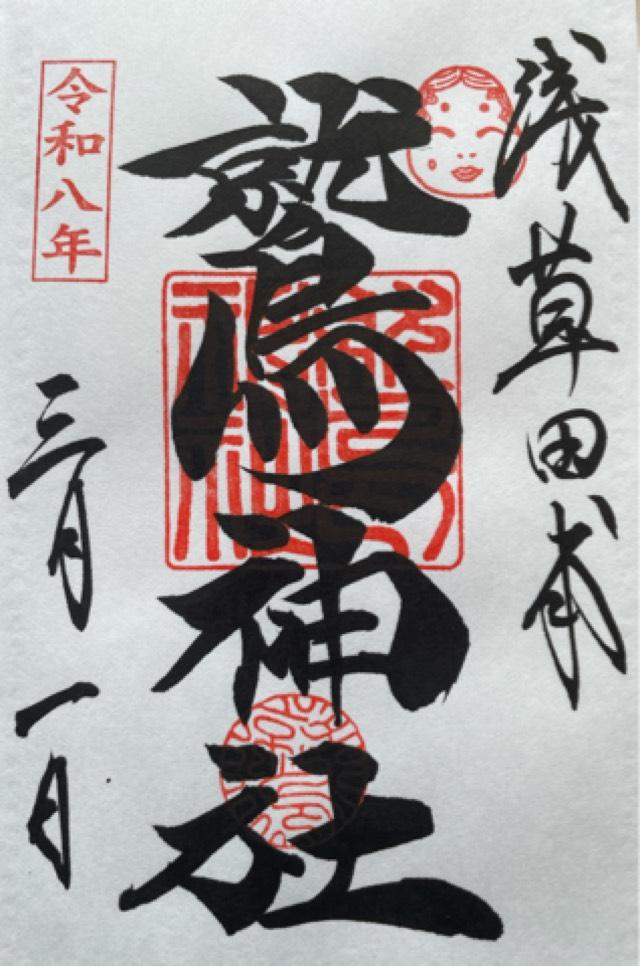 浅草田甫
鷲神社
令和八年
三月一日